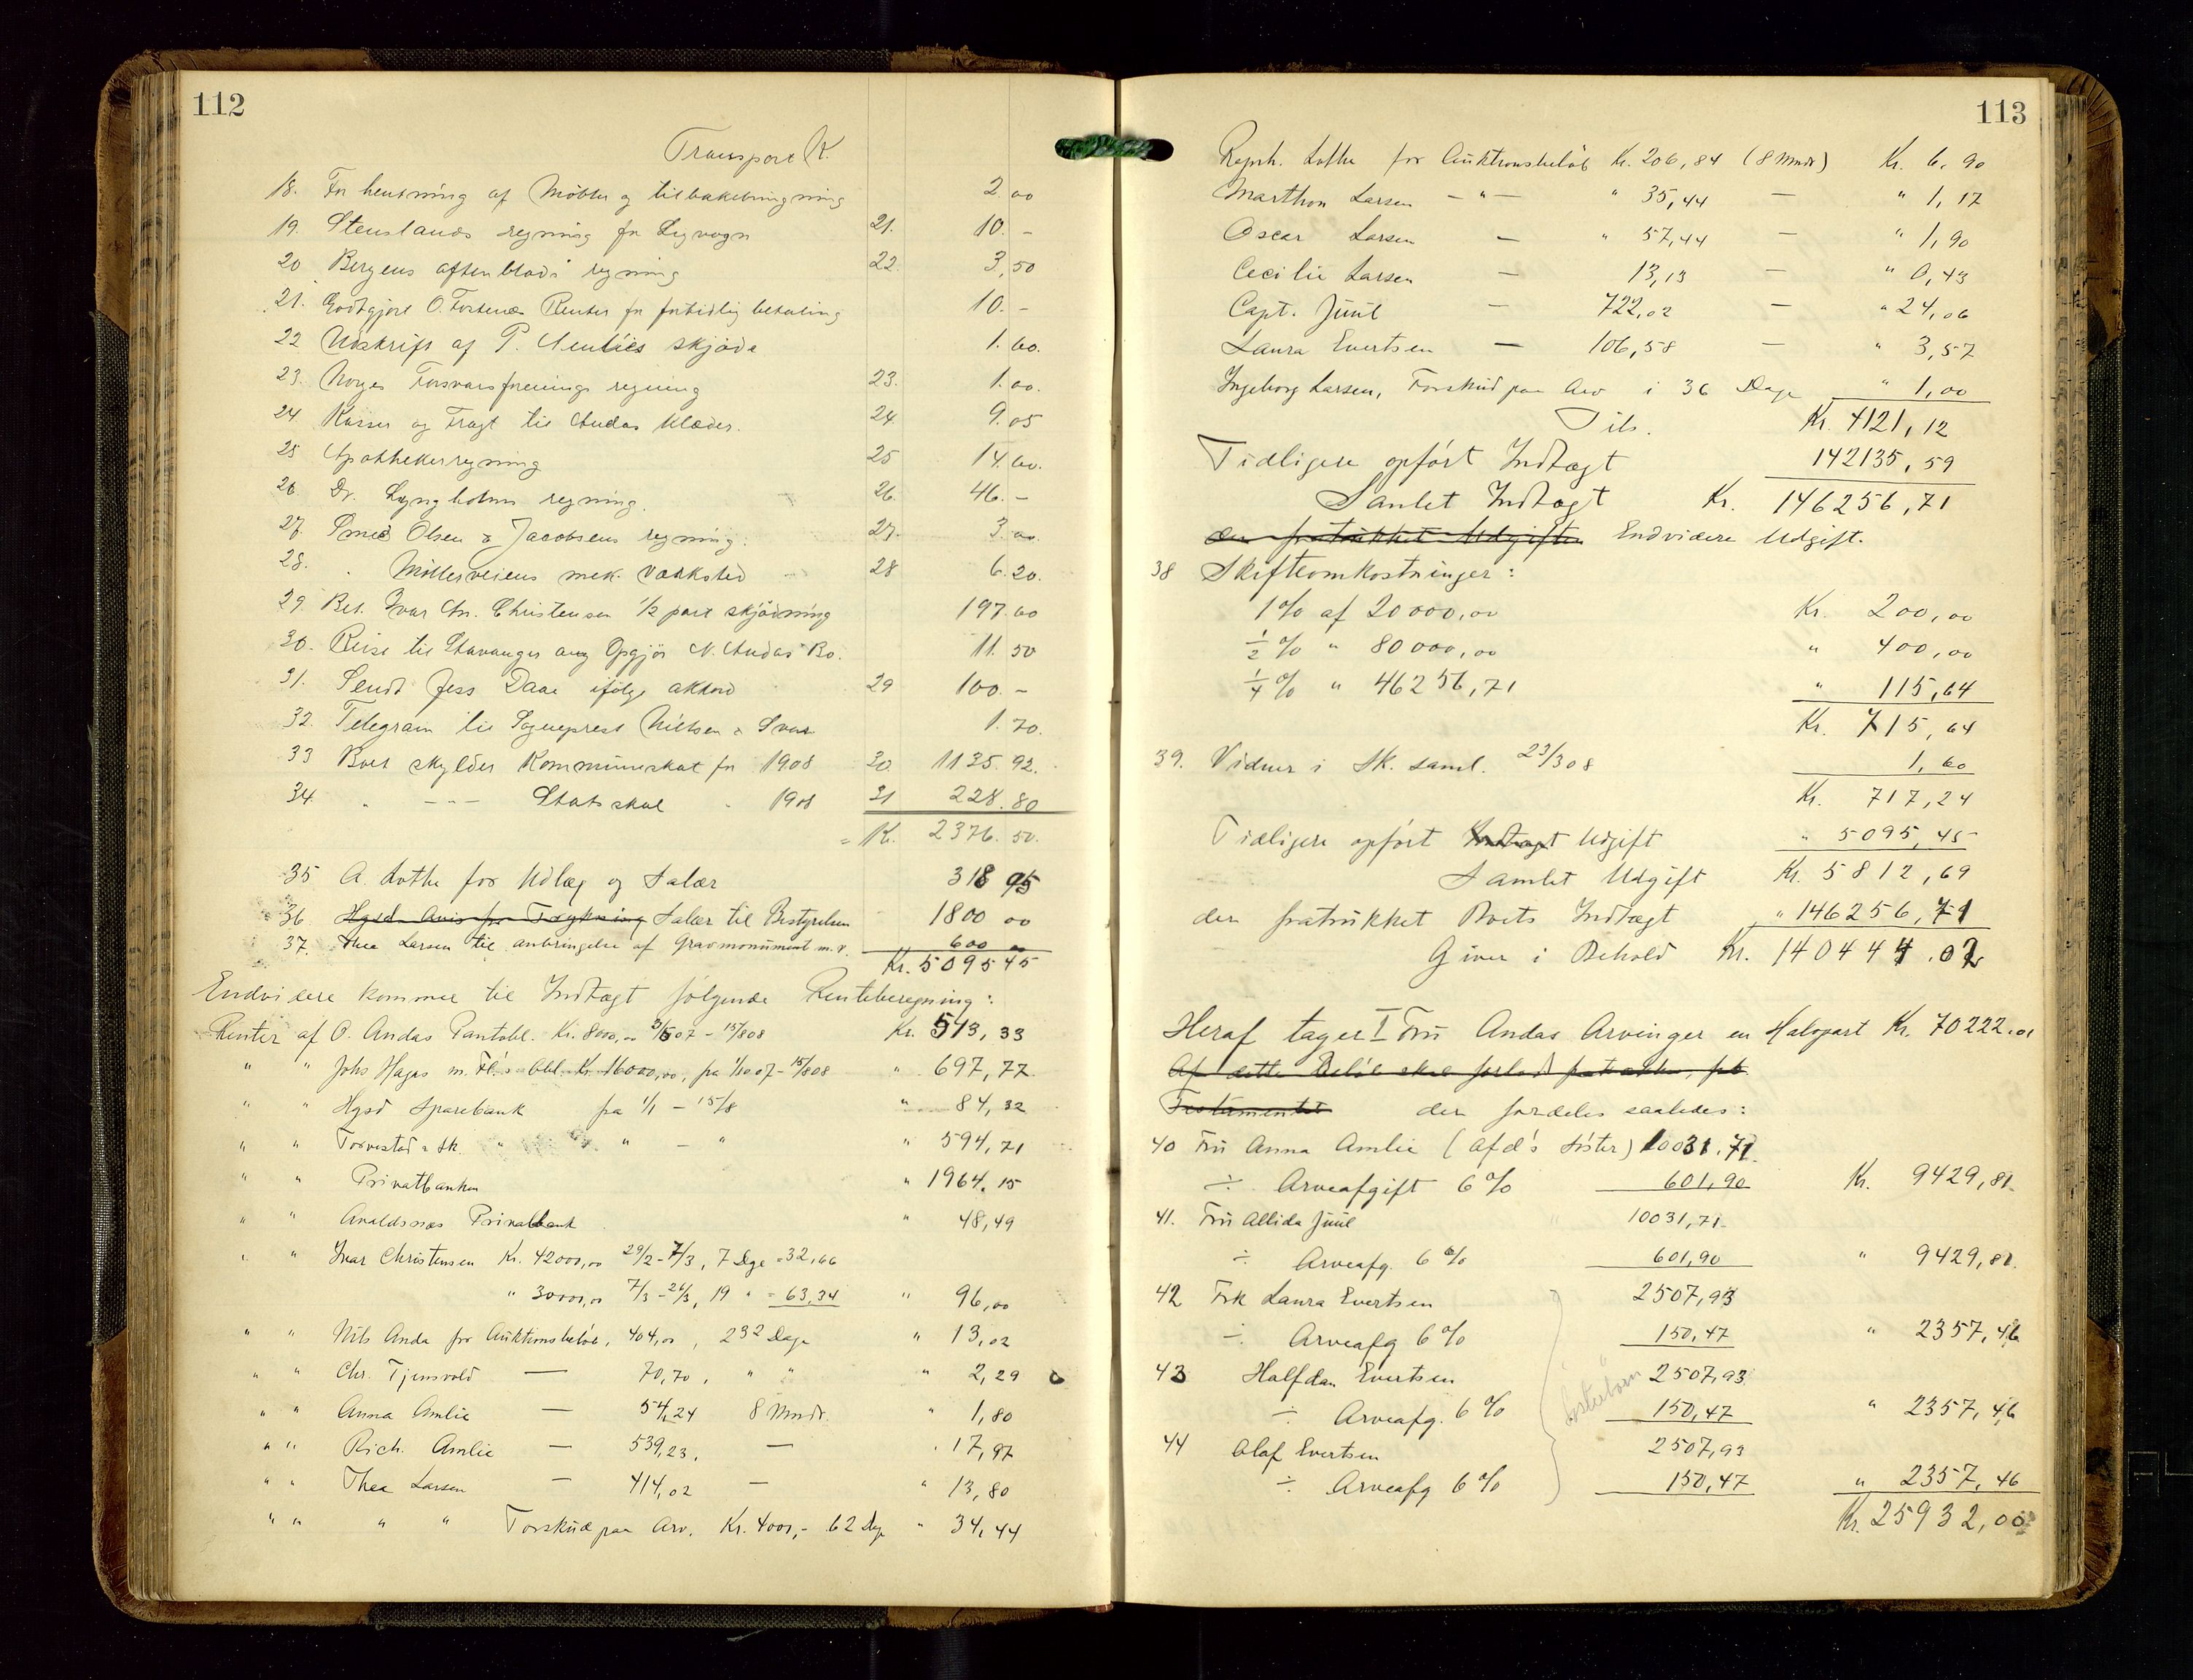 112
Transport K.
18. For hentning af Møbler og tilbakebringning 2.00
19. Stenslands regning for Ligvogn 21. 10.-
20 Bergens aftenblads regning 22. 3,50
21. Godtgjort O. Fosenæs Renter for fortidlig betaling 10.-
22 Udskrift af P. skjøde 1.60.
23. Norges Forsvarsforenings regning 23. 1.00.
24 Kasser og Fragt til Andas Klæder. 24. 9.05
25 Apothekerregning 25 14.60.
26 Dr. Lyngholms regning. 26. 46.-
27. Smed Olsen & Jacobsens regning. 27. 3.00.
28. Møllerveiens mek. Værksted 28 6.20.
29. Bet. Ivar Chr. Christensen ½ part skjødning 197.60
30. Reise til Stavanger ang Opgjør N. Andas Bo. 11.50
31. Sendt Jess Daae ifølge akkord 29 100.-
32. Telegram til Sogneprest Nielsen & Svar 1.70.
33 Boet skylder Kommuneskat for 1908 30. 1135.92.
34. " --- Statsskat " 1908 31 228.80
= K. 2376.50.
35 A. Lothe for Udlæg og Salær 318 95
36. Hgsd. Avis for Trykning Salær til Bestyrelsen 1800 00
37. Thea Larsen til anbringelse af Gravmonument m.v. 600 00
Kr. 5095 45
Endvidere kommer til Indtægt følgende Renteberegning:
Renter af O. Andas Pantobl. Kr. 8000,00 3/5 07 - 15/8 08 Kr. 513,33
" " Johs Hagas m. Fl.'s Obl. Kr. 16000,00, fra 1/10 07 - 15/8 08 " 697,77
" " Hgsd Sparebank fra 1/1 - 15/8 " 84,32
" " Torvestad & Sk. " " - " " 594,71
" " Privatbanken " 1964.15
" " Avaldsnæs Privatbank " 48,49
" " Ivar Christensen Kr. 42000,00 29/2 - 7/3, 7 Dge = 32,66
" 30000,00 7/3 - 26/3, 19 " = 63,34 " 96,00
" " Nils Anda for Auktionsbeløb, 404,00, 232 Dage " 13,02
" " Chr. Tjensvold — 70,70, " " " 2,29
" " Anna Amlie — 54,24 8 Mndr. " 1,80
" " Rich. Amlie — 539,23, — " 17,97
" " Thea Larsen — 414,02 — " 13,80
" " " " Forskud paa Arv. Kr. 4000,- 62 Dge " 34,44
113
Reprh. Lothe for Auktionsbeløb Kr. 206,84 (8 Mndr) Kr. 6,90
Marthon Larsen - " - " 35,44 — " 1,17
Oscar Larsen — " 57,44 — " 1,90
Cecilie Larsen — 13,13 — " 0,43
Capt. Juul — 722,02 — " 24,06
Laura Evertsen — 106,58 — " 3,57
Ingeborg Larsen, Forskud paa Arv i 36 Dage " 1,00
Tils. Kr. 4121,12
Tidligere opført Indtægt 142135,59
Samlet Indtægt Kr. 146256,71
der fratrukket Udgiften Endvidere Udgift.
38 Skifteomkostninger:
1% af 20000,00 Kr. 200,00
½% " 80000,00 " 400,00
¼% " 46256,71 " 115,64
Kr. 715,64
39. Vidner i Sk. saml. 23/3 08 1,60
Kr. 717,24
Tidligere opført Indtægt Udgift " 5095,45
Samlet Udgift Kr. 5812,69
der fratrukket Boets Indtægt " 146256,71
Giver i Behold Kr. 140444.02
Heraf tager I Fru Andas Arvinger en Halvpart Kr. 70222.01
Af dette Beløb skal forlods fratrækkes,
Testamentet der fordeles saaledes:
40 Fru Anna Amlie (Afd's Søster) 10031.71.
÷ Arveafgift 6% 601,90 Kr. 9429,81.
41. Fru Allida Juul 10031,71.
÷ Arveafg. 6% 601,90 " 9429,81.
42 Frk Laura Evertsen 2507,93
÷ Arveafg 6% 150,47 " 2357,46
43 Halfdan Evertsen 2507,93
÷ Arveafg. 6% 150,47 " 2357,46
44 Olaf Evertsen 2507,93
÷ Arveafg 6% 150,47 " 2357,46
Søsterbørn
Kr. 25932,00